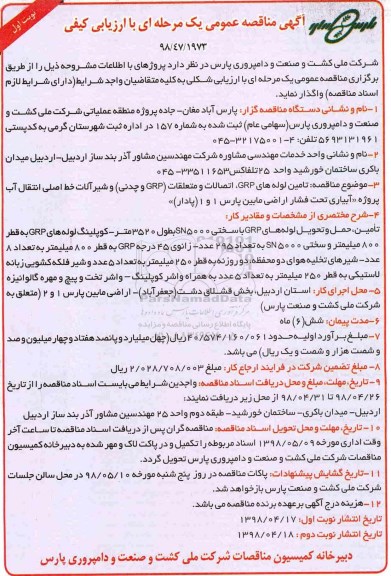 نوبت اول
آگهی مناقصه عمومی یک مرحله ای با ارزیابی کیفی
۹۸/۴۷/۱۹۷۳
شرکت ملی کشت و صنعت و دامپروری پارس در نظر دارد پروژهای با اطلاعات مشروحه ذیل را از طریق
برگزاری مناقصه عمومی یک مرحله ای با ارزیابی شکلی به کلیه متقاضیان واجد شرایط(دارای شرایط لازم
اسناد مناقصه) واگذار نماید.
۱-نام و نشانی دستگاه مناقصه گزار: پارس آباد مغان- جاده پروژه منطقه عملیاتی شرکت ملی کشت و
صنعت و دامپروری پارس(سهامی عام) ثبت شده به شماره ۱۵۷ در اداره ثبت شهرستان گرمی به کدپستی
۵۶۹۳۱۳۱۹۶۱ تلفن: ۴-۳۲۱۷۵۰۰۱-۰۴۵
۲-نام و نشانی واحد خدمات مهندسی مشاوره شرکت مهندسین مشاور آذر بند ساز اردبیل-اردبیل میدان
باکری ساختمان خورشید واحد ۲۵ تلفاکس ۳۳۵۱۱۶۵۳-۰۴۵
۳-موضوع مناقصه: تامین لوله های GRP، اتصالات و متعلقات (GRP و چدنی) و شیرآلات خط اصلی انتقال آب
پروژه «آبیاری تحت فشار اراضی مابین پارس ۱ و ۲(پادار)»
۴-شرح مختصری از مشخصات و مقادیر کار:
تامین،حمل و تحویل لوله های GRP با سختی SN5000 بطول ۳۵۲۰ متر- کوپلینگ لوله های GRP به قطر
۸۰۰ میلیمتر و سختی SN5000 به تعداد ۲۹۵ عدد- زانوی ۴۵ درجه GRP به قطر ۸۰۰ میلیمتر به تعداد ۸
عدد- شیرهای تخلیه هوای دو محفظه، دو روزنه به قطر ۲۵۰ میلیمتر به تعداد ۵ عدد و شیر فلکه کشویی زبانه
لاستیکی به قطر ۲۵۰ میلیمتر به تعداد ۵ عدد به همراه واشر کوپلینگ - واشر تخت و پیچ و مهره گالوانیزه
۵-محل اجرای کار: استان اردبیل، بخش قشلاق دشت(جعفرآباد)- اراضی مابین پارس ۱ و ۲ (متعلق به
شرکت ملی کشت و صنعت پارس)
۶-مدت پیمان: شش(۶) ماه
۷-مبلغ برآورد اولیه:حدود ۴۰/۵۷۴/۱۶۰/۰۶۱ ریال(چهل میلیارد و پانصد هفتاد و چهار میلیون و صد
و شصت هزار و شصت و یک ریال) می باشد.
۸-مبلغ تضمین شرکت در فرایند ارجاع کار: مبلغ ۲/۰۲۸/۷۰۸/۰۰۳ ریال
۹-تاریخ،مهلت، مبلغ و محل دریافت اسناد مناقصه: واجدین شرایط می بایست اسناد مناقصه را از تاریخ
۹۸/۰۴/۲۶ تا ۹۸/۰۴/۳۱ از محل زیر دریافت نمایند:
اردبیل- میدان باکری- ساختمان خورشید- طبقه دوم واحد ۲۵ مهندسین مشاور آذر بند ساز اردبیل
۱۰-تاریخ،مهلت و محل تحویل اسناد مناقصه: مناقصه گران پس از دریافت اسناد مناقصه تا ساعت آخر
وقت اداری مورخه ۱۳۹۸/۰۵/۰۹ اسناد مربوطه را تکمیل و در پاکت لاک و مهر شده به دبیرخانه کمیسیون
مناقصات شرکت ملی کشت و صنعت و دامپروری پارس تحویل گردد.
۱۱-تاریخ گشایش پیشنهادات: پاکات مناقصه در روز پنج شنبه مورخه ۹۸/۰۵/۱۰ در محل سالن جلسات
شرکت ملی کشت و صنعت پارس بازخواهد شد.
۱۲-هزینه درج آگهی برعهده برنده مناقصه می باشد.
تاریخ انتشار نوبت اول: ۱۳۹۸/۰۴/۱۷
تاریخ انتشار نوبت دوم : ۱۳۹۸/۰۴/۱۸
دبیرخانه کمیسیون مناقصات شرکت ملی کشت و صنعت و دامپروری پارس